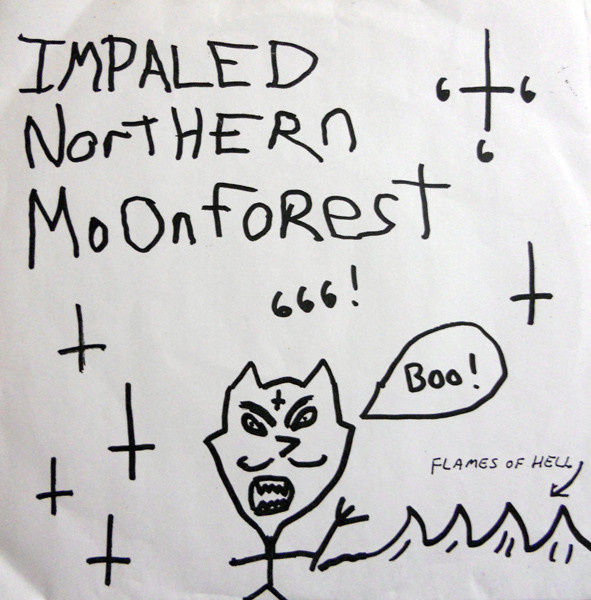 IMPALED
NorTHERn
MoOnFoRest
6 6
6
666!
Boo!
FLAMES OF HELL